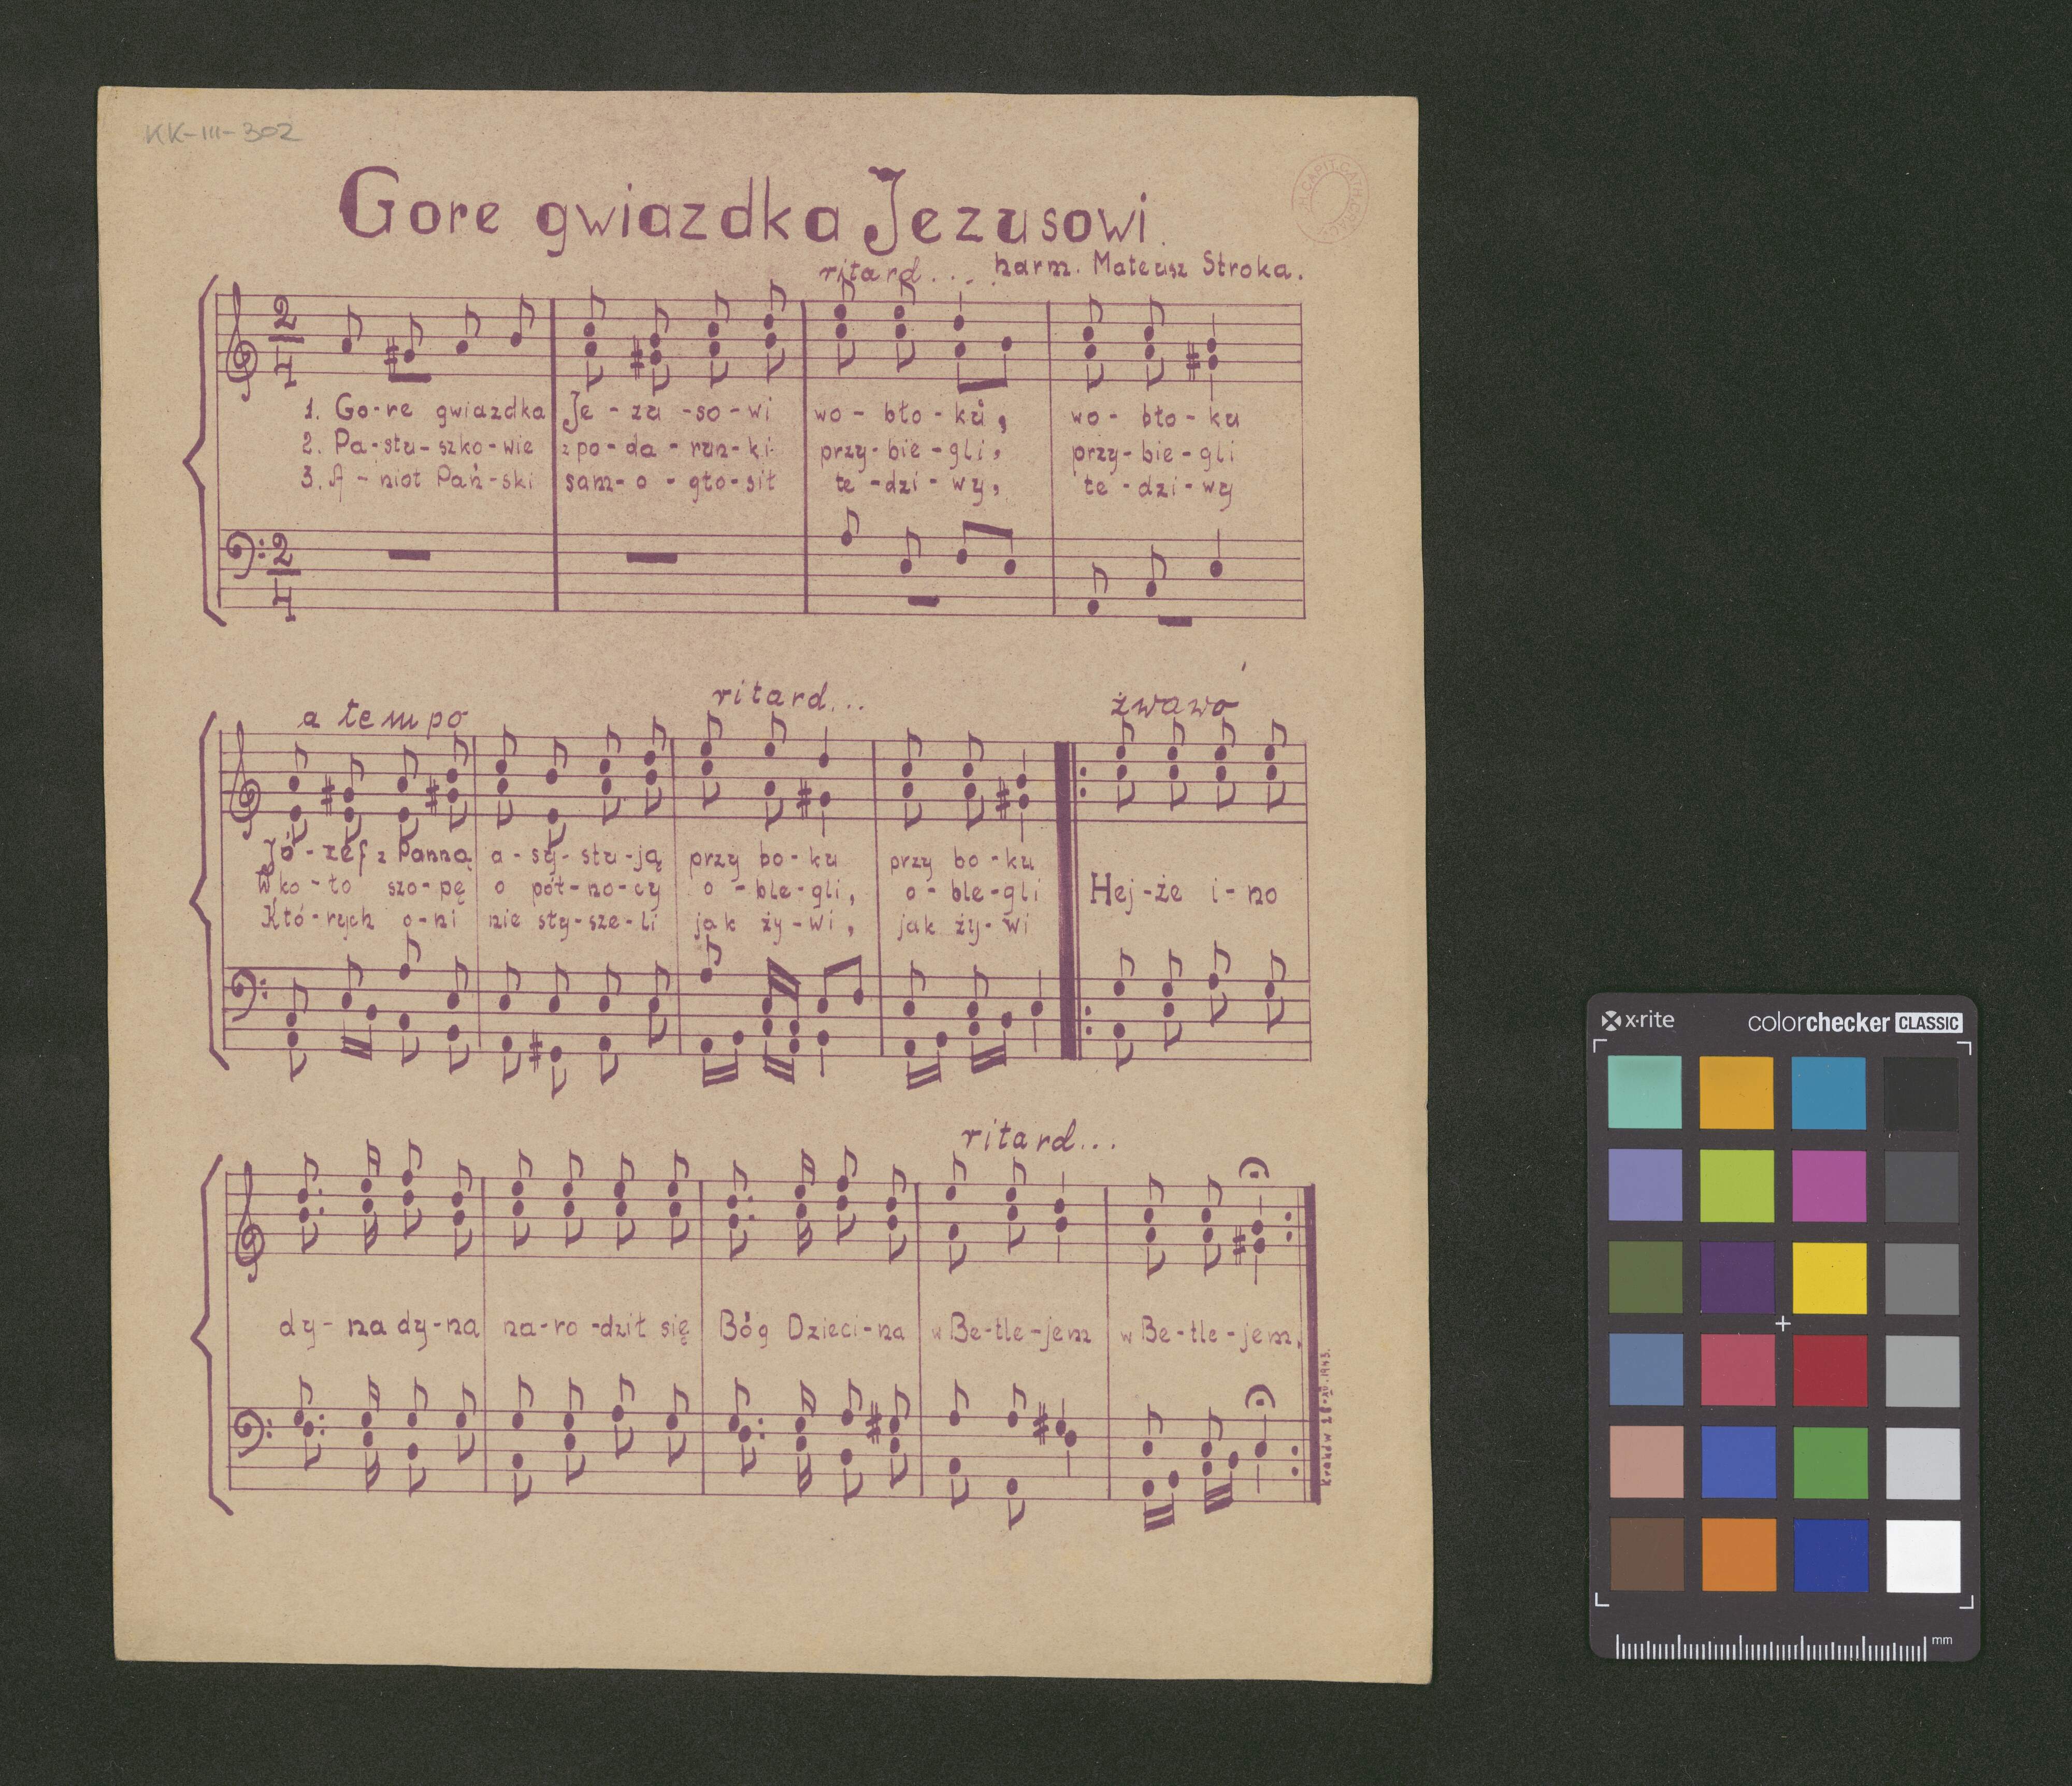 KK-III-302
Gore gwiazdka Jezusowi.
ritard... harm. Mateusz Stroka.
2
4
1. Go-re gwiazdka Je-zu-so-wi wo-bło-ku, wo-bło-ku
2. Pa-stu-szko-wie z po-da-run-ki przy-bie-gli, przy-bie-gli
3. A-nioł Pań-ski sam-o-gło-sił te-dzi-wy, te-dzi-wy
2
4
a tempo ritard... żwawo
Jó-zef z Panną a-sy-stu-ją przy bo-ku przy bo-ku
W ko-ło szo-pę o pół-no-cy o-ble-gli, o-ble-gli Hej-że i-no
Któ-rych o-ni nie sły-sze-li jak ży-wi, jak ży-wi
ritard...
dy-na dy-na na-ro-dził się Bóg Dzieci-na w Be-tle-jem w Be-tle-jem.
x·rite colorchecker CLASSIC
mm